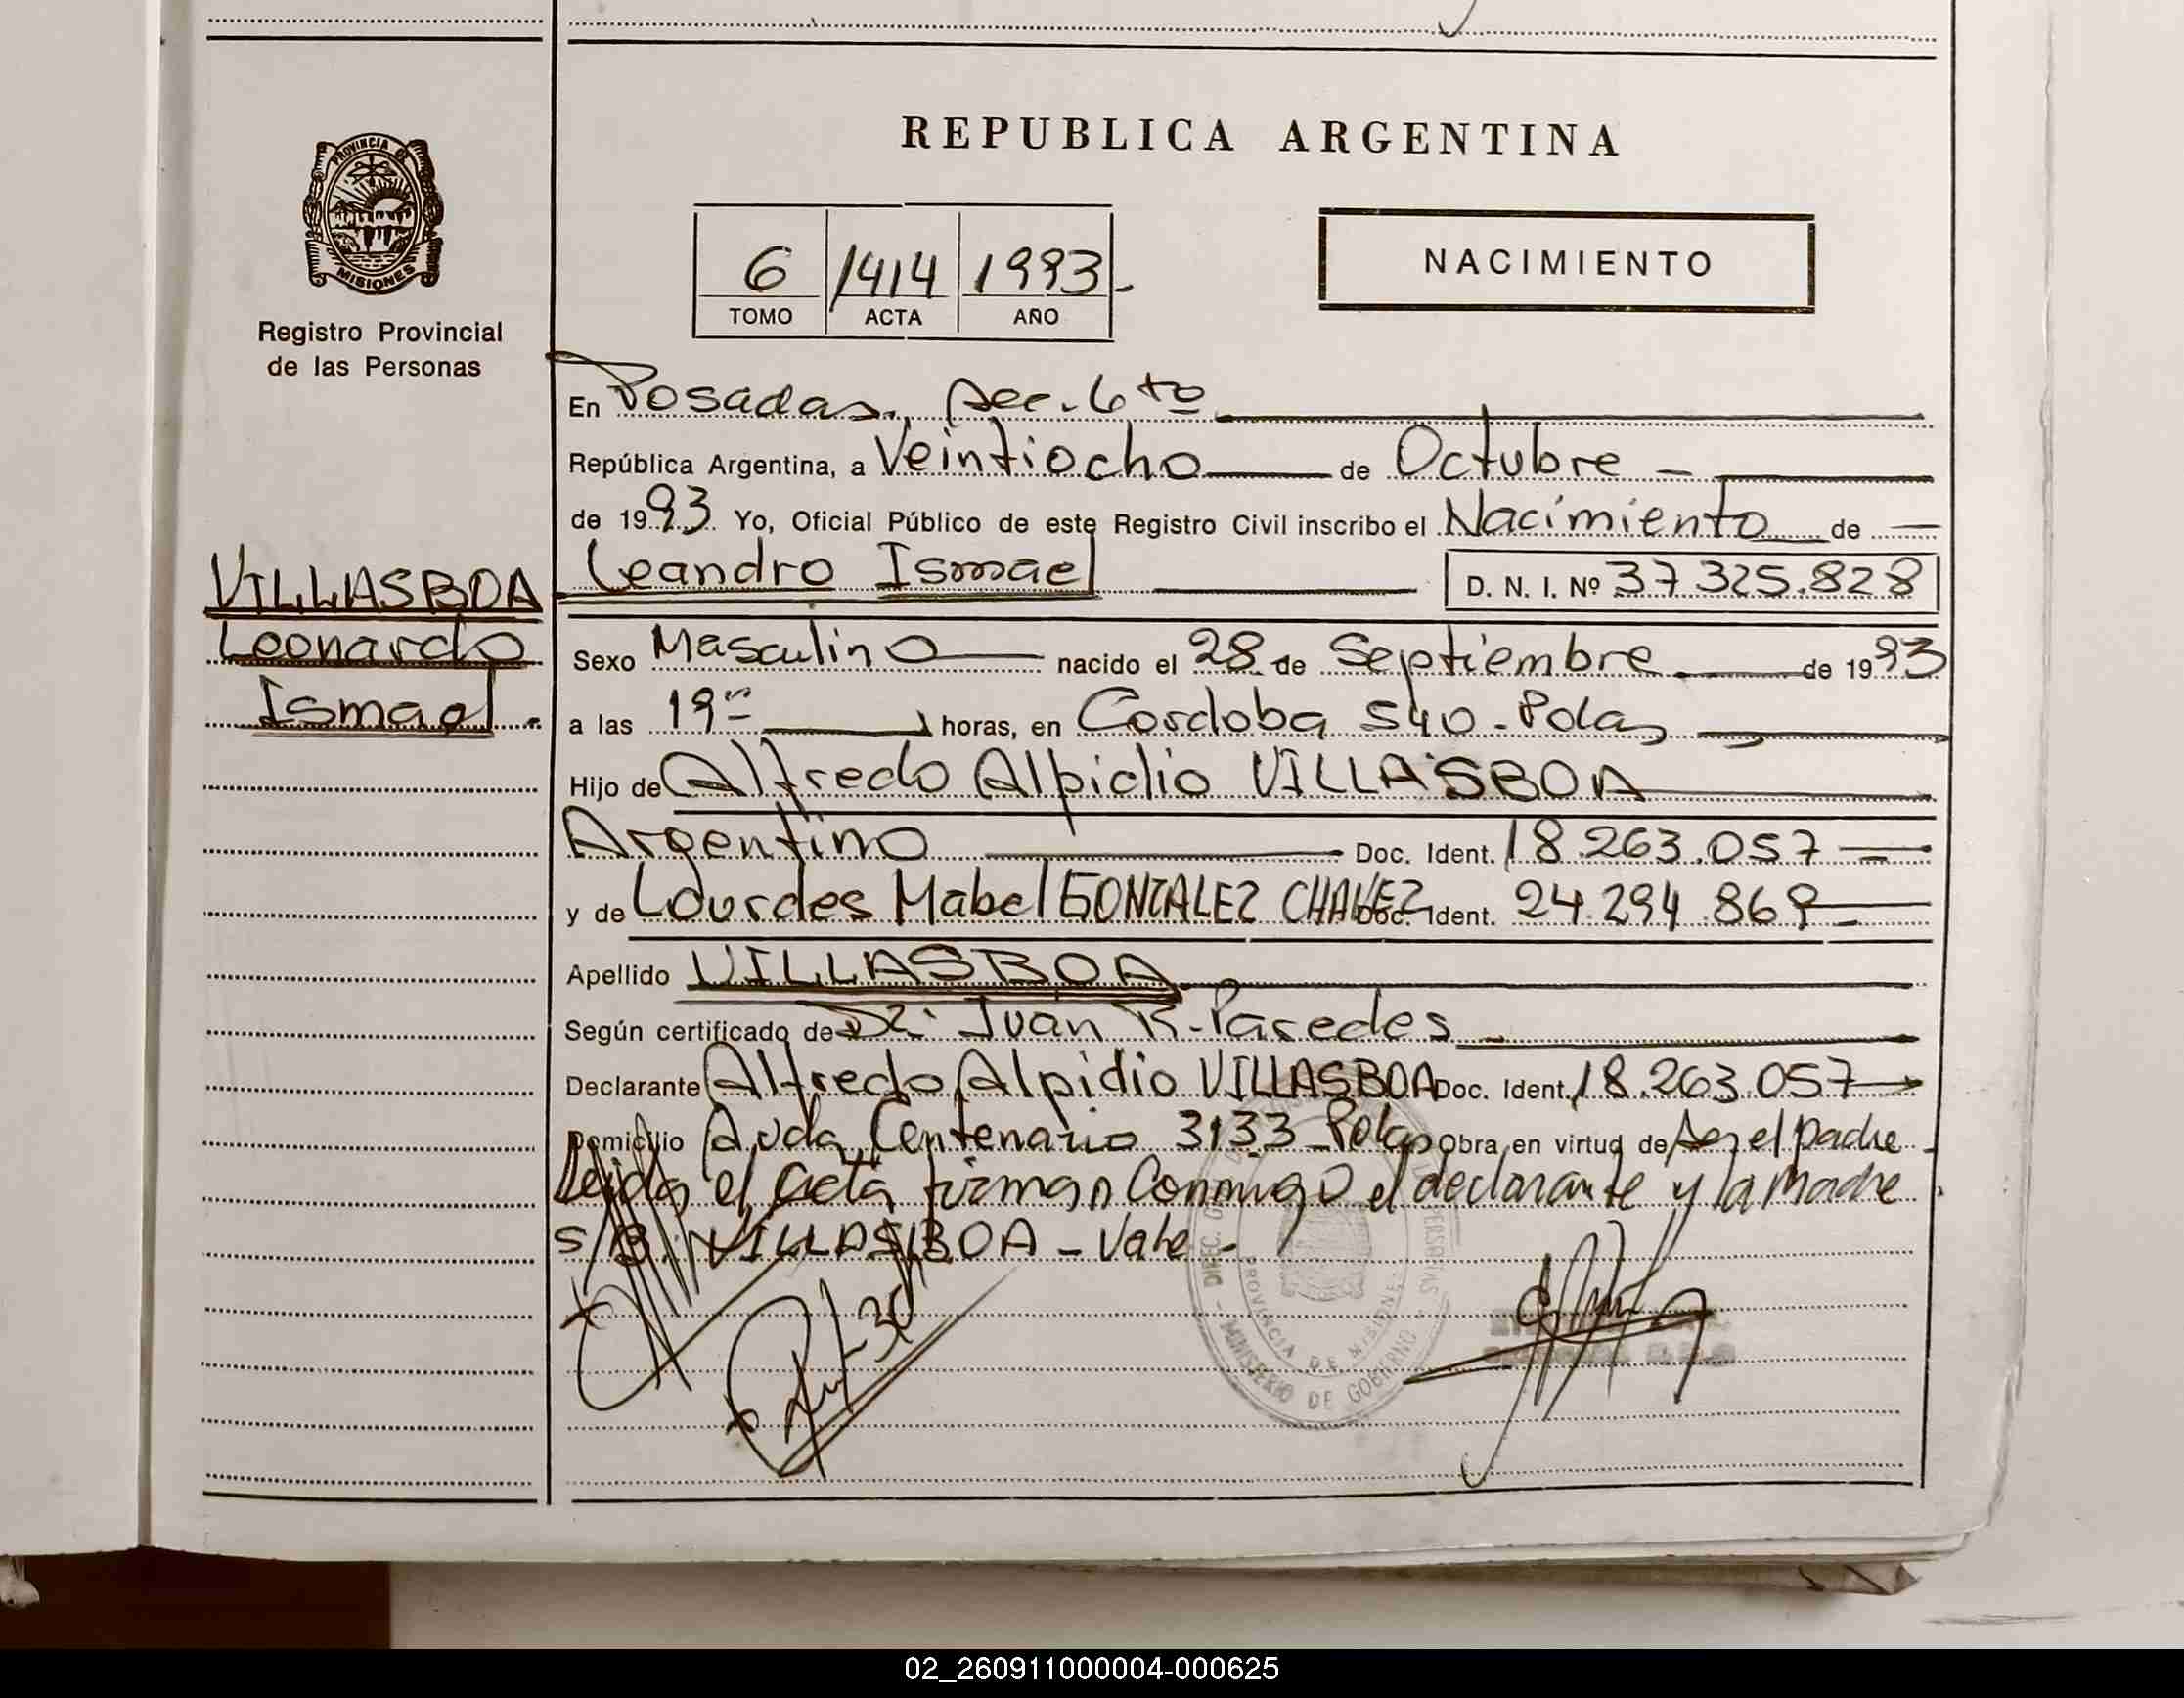 REPUBLICA ARGENTINA
PROVINCIA DE MISIONES
Registro Provincial
de las Personas
6 1414 1993-
TOMO ACTA AÑO
NACIMIENTO
En Posadas, Sec. 6ta
República Argentina, a Veintiocho de Octubre
de 1993 Yo, Oficial Público de este Registro Civil inscribo el Nacimiento de
VILLASBOA
Leonardo
Ismael.
Leandro Ismael D. N. I. Nº 37.325.828
Sexo Masculino nacido el 28 de Septiembre de 1993
a las 19 horas, en Cordoba 540 - Pdas
Hijo de Alfredo Alpidio VILLASBOA
Argentino Doc. Ident. 18.263.057
y de Lourdes Mabel GONZALEZ CHAVEZ Doc. Ident. 24.294.869
Apellido VILLASBOA
Según certificado de Dr. Juan R. Paredes
Declarante Alfredo Alpidio VILLASBOA Doc. Ident. 18.263.057
Domicilio Avda Centenario 3133 - Pdas Obra en virtud de Ser el padre
Leida el acta firman Conmigo el declarante y la Madre
S/B: VILLASBOA - Vale -
PROVINCIA DE MISIONES
MINISTERIO DE GOBIERNO
02_260911000004-000625